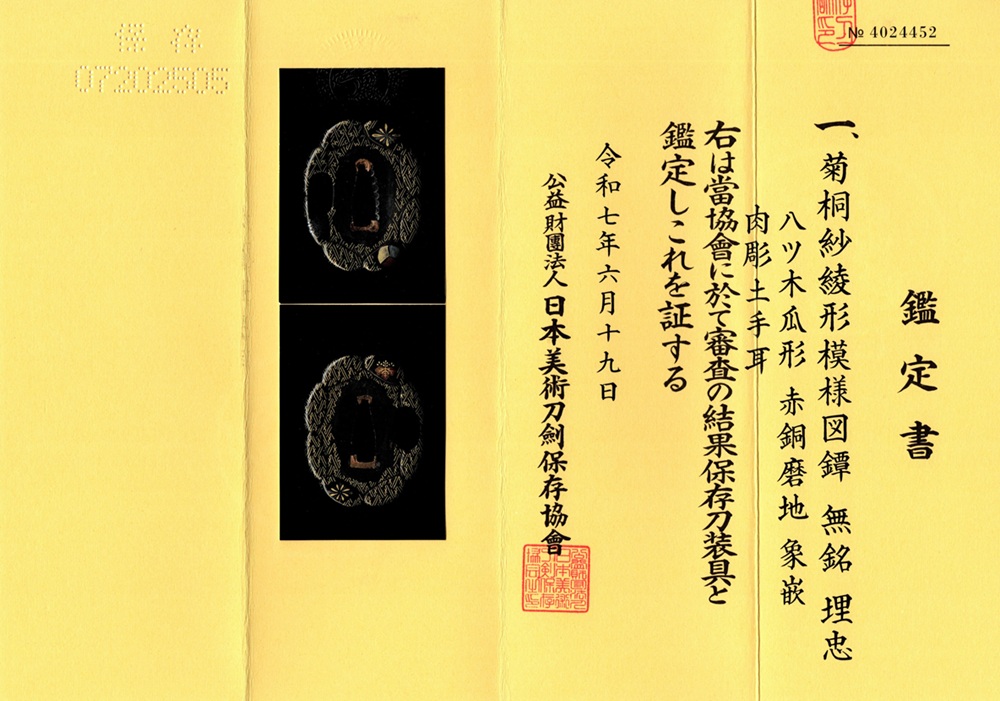 № 4024452
鑑定書
一、菊桐紗綾形模様図鐔 無銘 埋忠
八ツ木瓜形 赤銅磨地 象嵌
肉彫土手耳
右は當協會に於て審査の結果保存刀装具と
鑑定しこれを証する
令和七年六月十九日
公益財團法人 日本美術刀劍保存協會
保存
07202505